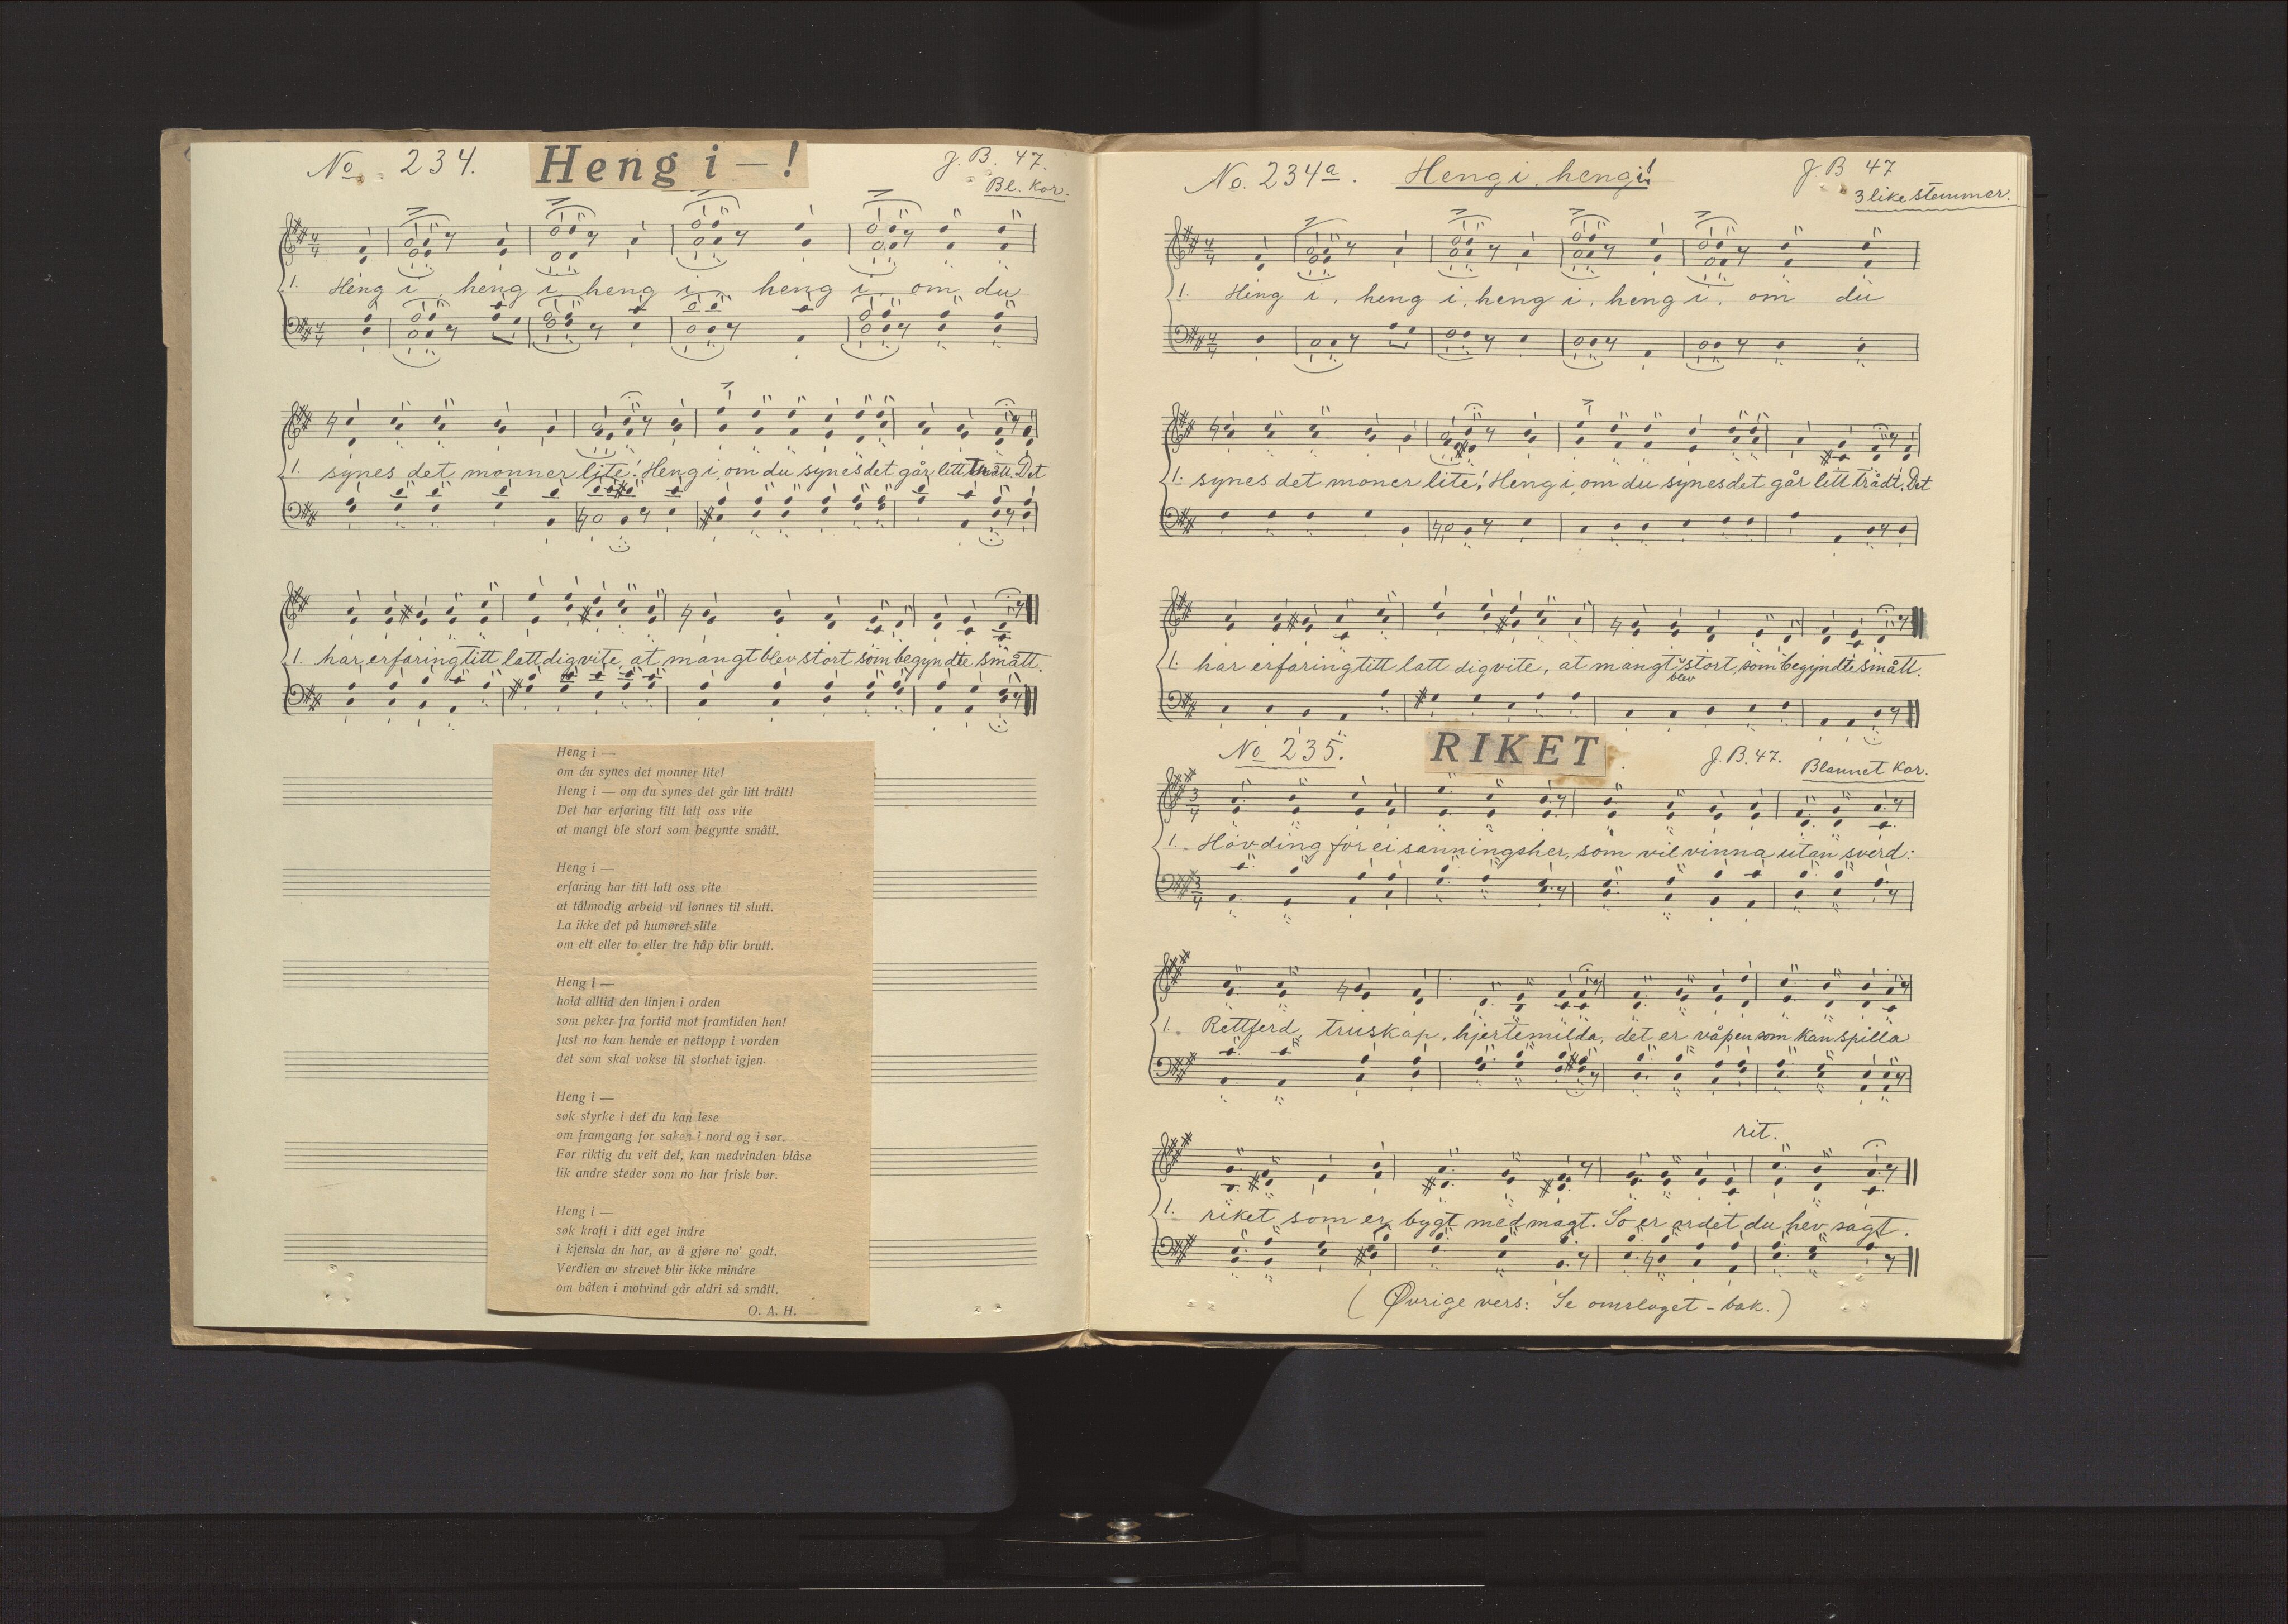 No. 234. Heng i —! J. B. 47.
Bl. Kor.
1. Heng i, heng i heng i, heng i, om du
1. synes det monner lite! Heng i, om du synes det går litt trått. Det
1. har erfaring titt latt dig vite, at mangt blev stort som begyndte smått.
Heng i —
om du synes det monner lite!
Heng i — om du synes det går litt trått!
Det har erfaring titt latt oss vite
at mangt ble stort som begynte smått.
Heng i —
erfaring har titt latt oss vite
at tålmodig arbeid vil lønnes til slutt.
La ikke det på humøret slite
om ett eller to eller tre håp blir brutt.
Heng i —
hold alltid den linjen i orden
som peker fra fortid mot framtiden hen!
Just no kan hende er nettopp i vorden
det som skal vokse til storhet igjen.
Heng i —
søk styrke i det du kan lese
om framgang for saken i nord og i sør.
Før riktig du veit det, kan medvinden blåse
lik andre steder som no har frisk bør.
Heng i —
søk kraft i ditt eget indre
i kjensla du har, av å gjøre no' godt.
Verdien av strevet blir ikke mindre
om båten i motvind går aldri så smått.
O. A. H.
No. 234a. Heng i, heng i! J. B 47
3 like stemmer.
1. Heng i, heng i, heng i, heng i, om du
1. synes det moner lite! Heng i, om du synes det går litt trådt. Det
1. har erfaring titt latt dig vite, at mangt blev stort, som begyndte smått.
No 235. RIKET J. B. 47. Blannet Kor.
1. Høvding for ei sanningsher, som vil vinna utan sverd:
1. Rettferd, truskap, hjertemilda, det er våpen som kan spilla
rit.
1. riket som er bygt med magt. So er ordet du hev sagt.
(Øvrige vers: Se omslaget - bak.)